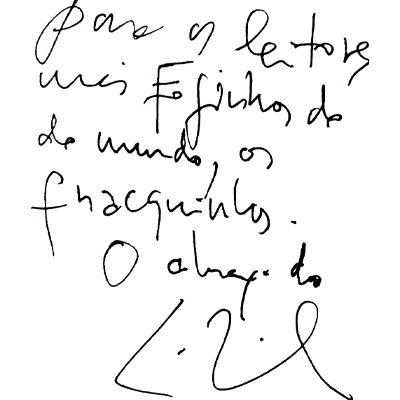 para os leitores
mais Fofinhos do
do mundo, os
fnacquinhos.
O abraço do